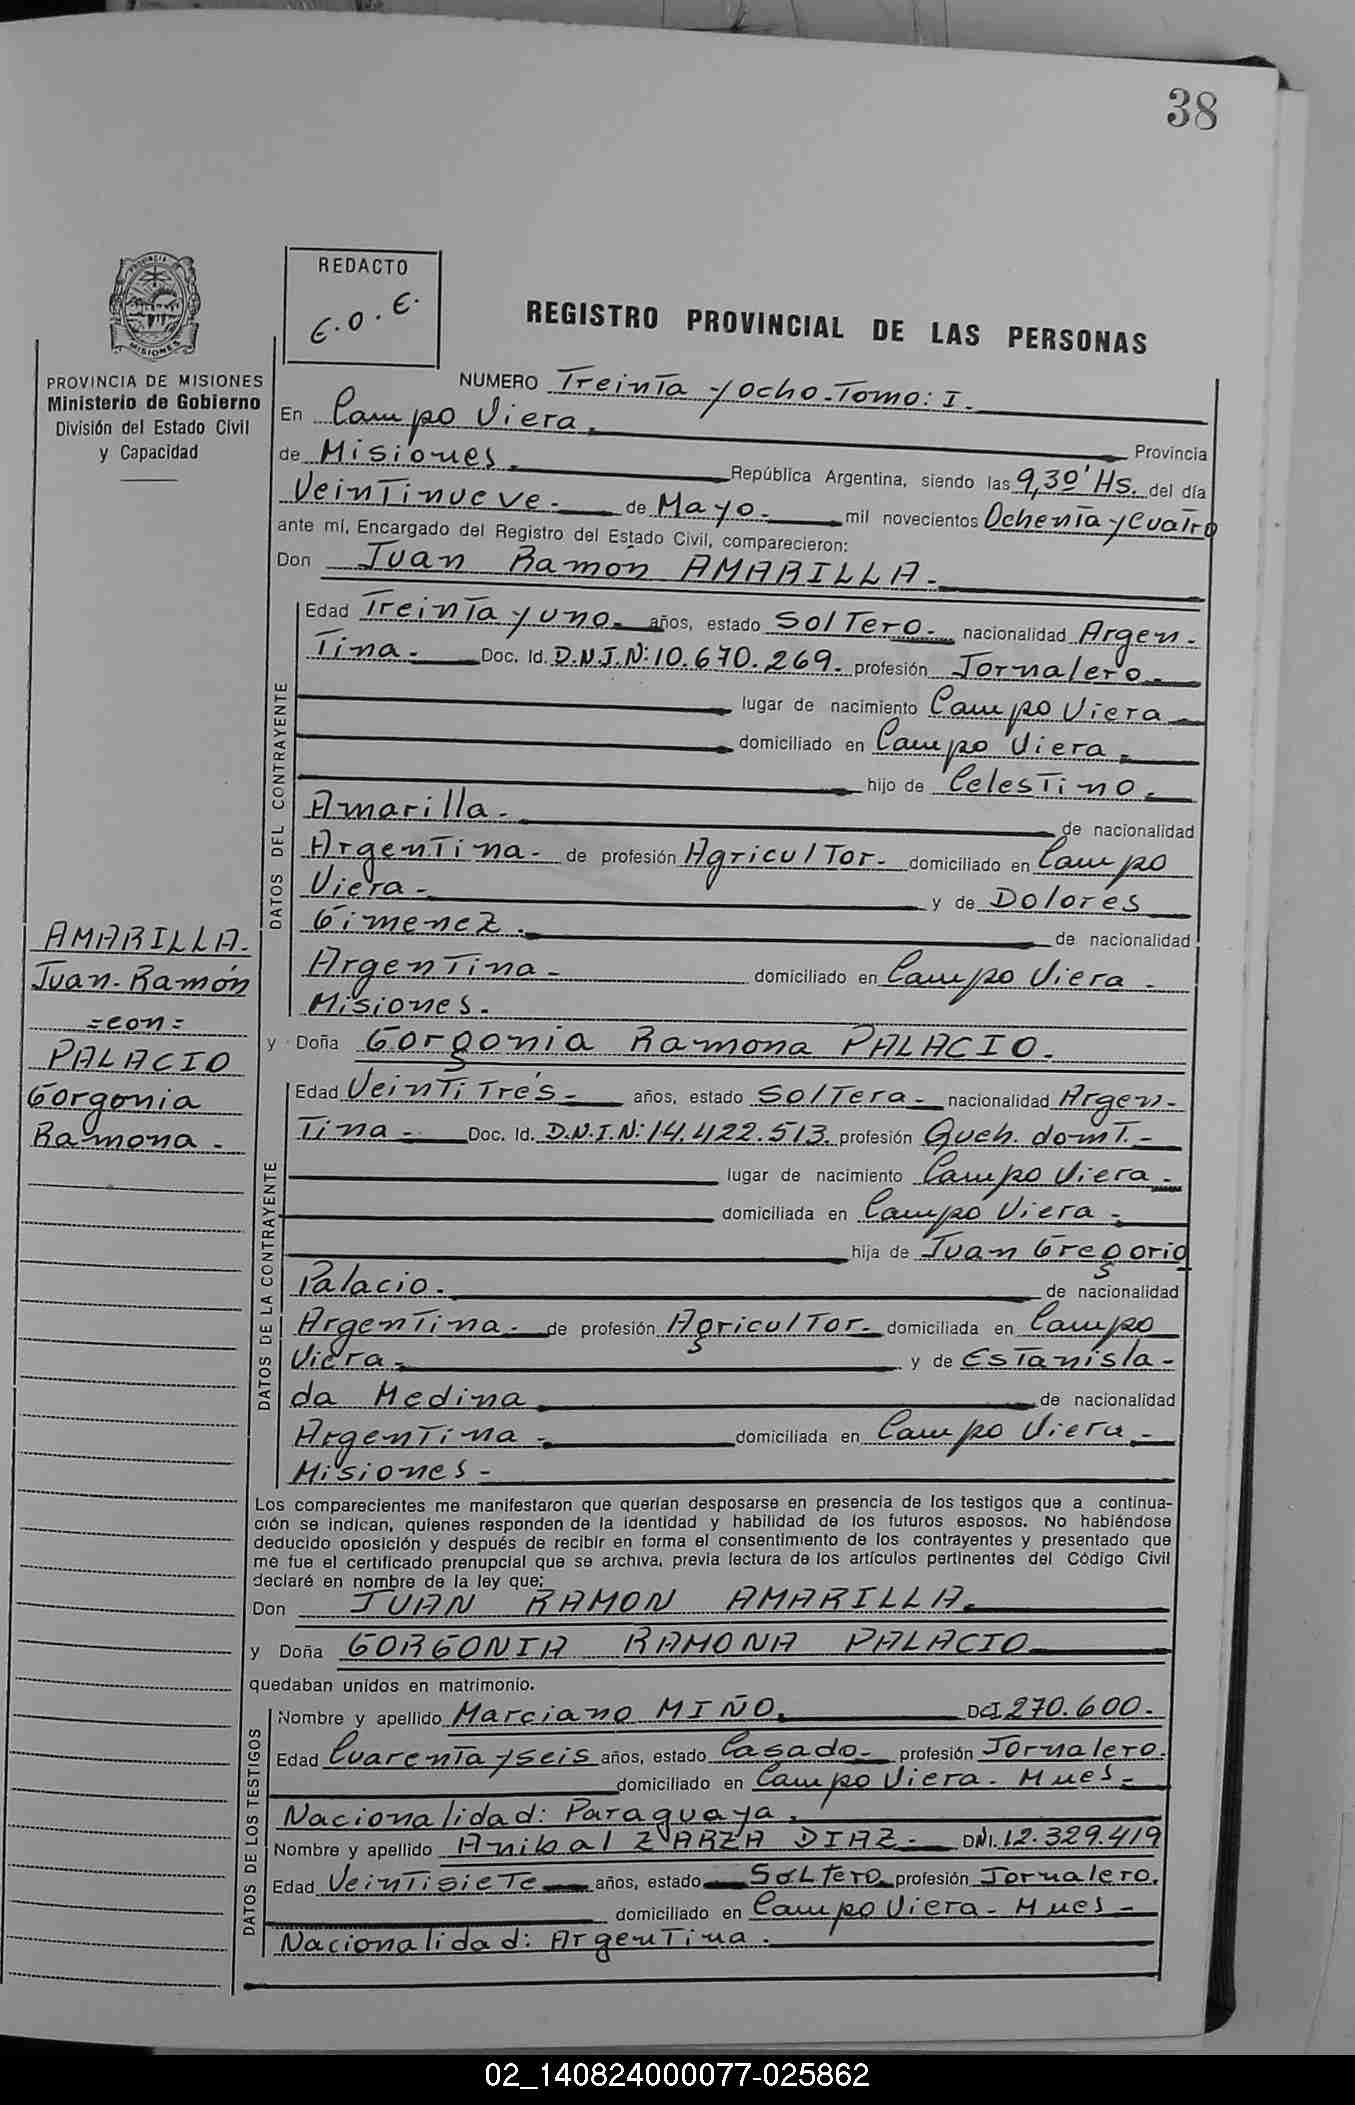 38
PROVINCIA
MISIONES
PROVINCIA DE MISIONES
Ministerio de Gobierno
División del Estado Civil
y Capacidad
REDACTO
E.O.E.
REGISTRO PROVINCIAL DE LAS PERSONAS
NUMERO Treinta y ocho-Tomo: I.
En Campo Viera. Provincia
de Misiones. República Argentina, siendo las 9,30' Hs. del día
Veintinueve.- de Mayo.- mil novecientos Ochenta y Cuatro
ante mí, Encargado del Registro del Estado Civil, comparecieron:
Don Juan Ramón AMARILLA.-
DATOS DEL CONTRAYENTE
Edad Treinta y uno.- años, estado Soltero.- nacionalidad Argen-
tina.- Doc. Id. D.N.I.N:10.670.269.- profesión Jornalero.-
lugar de nacimiento Campo Viera
domiciliado en Campo Viera.
hijo de Celestino.
Amarilla.- de nacionalidad
Argentina.- de profesión Agricultor.- domiciliado en Campo
Viera.- y de Dolores
Gimenez. de nacionalidad
Argentina.- domiciliado en Campo Viera.-
Misiones.
AMARILLA.
Juan-Ramón
=con=
PALACIO
Gorgonia
Ramona.-
y Doña Gorgonia Ramona PALACIO.
DATOS DE LA CONTRAYENTE
Edad Veintitrés.- años, estado Soltera.- nacionalidad Argen-
tina.- Doc. Id. D.N.I.N:14.422.513. profesión Queh. domt.-
lugar de nacimiento Campo Viera.
domiciliada en Campo Viera.-
hija de Juan Gregorio
Palacio. de nacionalidad
Argentina.- de profesión Agricultor.- domiciliada en Campo
Viera.- y de Estanisla-
da Medina de nacionalidad
Argentina.- domiciliada en Campo Viera.-
Misiones-
Los comparecientes me manifestaron que querían desposarse en presencia de los testigos que a continua-
ción se indican, quienes responden de la identidad y habilidad de los futuros esposos. No habiéndose
deducido oposición y después de recibir en forma el consentimiento de los contrayentes y presentado que
me fue el certificado prenupcial que se archiva, previa lectura de los artículos pertinentes del Código Civil
declaré en nombre de la ley que;
Don JUAN RAMON AMARILLA.
y Doña GORGONIA RAMONA PALACIO
quedaban unidos en matrimonio.
DATOS DE LOS TESTIGOS
Nombre y apellido Marciano MIÑO. DCI 270.600.-
Edad Cuarenta y seis años, estado Casado.- profesión Jornalero.
domiciliado en Campo Viera. Mnes.-
Nacionalidad: Paraguaya.
Nombre y apellido Anibal ZARZA DIAZ.- DNI. 12.329.419
Edad Veintisiete años, estado Soltero profesión Jornalero.
domiciliado en Campo Viera- Mnes-
Nacionalidad: Argentina.
02_140824000077-025862